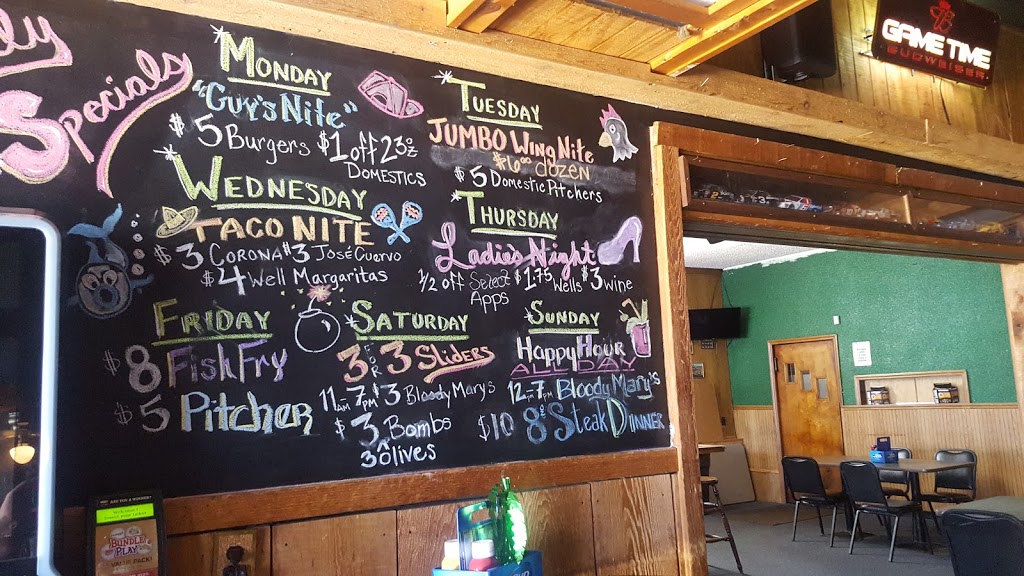 ly
Specials
MONDAY
"GUY'S NITE"
$5 Burgers $1 off 23oz
DOMESTICS
TUESDAY
JUMBO WING NITE
$6.00 dozen
$5 Domestic Pitchers
WEDNESDAY
TACO NITE
$3 CORONA $3 José Cuervo
$4 Well Margaritas
THURSDAY
Ladie's Night
1/2 off Select Apps $1.75 Wells $3 wine
FRIDAY
$8 Fish Fry
$5 Pitcher
SATURDAY
3 FER 3 SLIDERS
11AM-7PM $3 Bloody Mary's
$3 Bombs
3 olives
SUNDAY
Happy Hour
ALL DAY
12-7PM Bloody Mary's
$10 8oz Steak Dinner
GAME TIME
BUDWEISER
BUNDLE
PLAY
VALUE PACK!